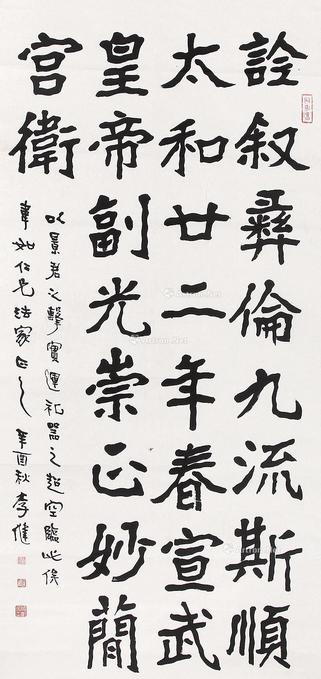 詮叙彝倫九流斯順
太和廿二年春宣武
皇帝副光崇正妙簡
宮衛
以景君之擊實運礼器之超空臨此俟
韋如仁兄法家正之 辛酉秋 李健